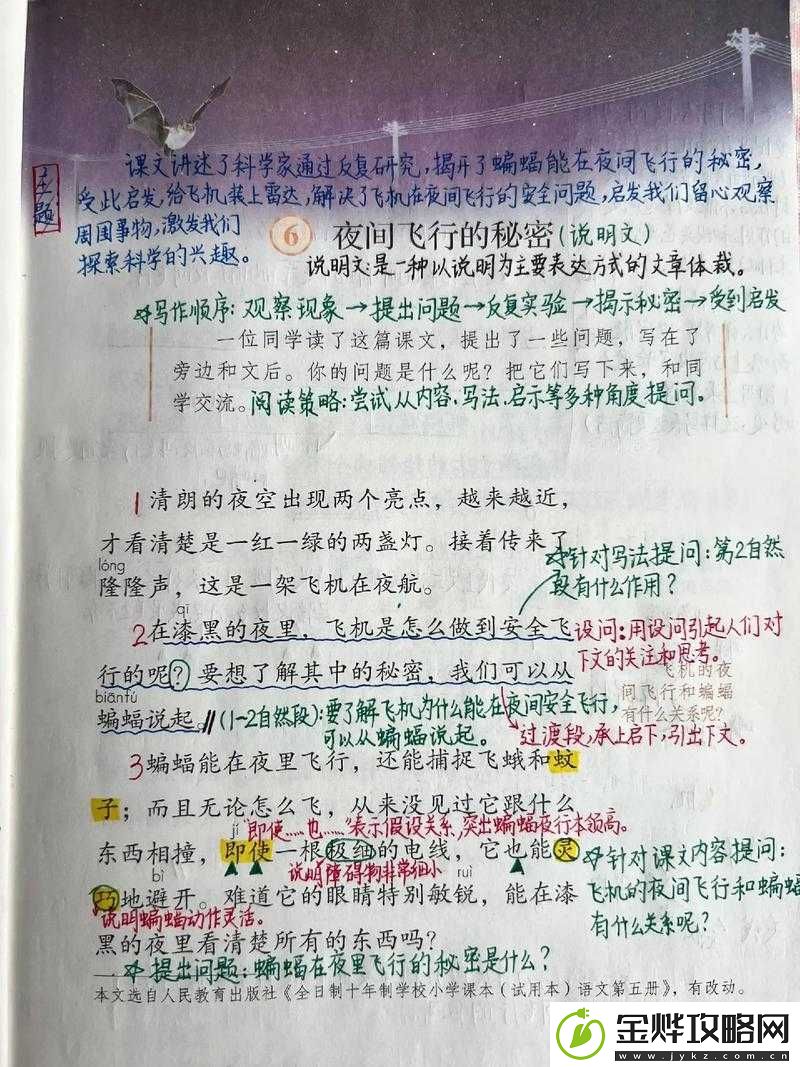 主题
课文讲述了科学家通过反复研究，揭开了蝙蝠能在夜间飞行的秘密，
受此启发，给飞机装上雷达，解决了飞机在夜间飞行的安全问题，启发我们留心观察
周围事物，激发我们
探索科学的兴趣。
6 夜间飞行的秘密(说明文)
说明文：是一种以说明为主要表达方式的文章体裁。
写作顺序：观察现象→提出问题→反复实验→揭示秘密→受到启发
一位同学读了这篇课文，提出了一些问题，写在了
旁边和文后。你的问题是什么呢？把它们写下来，和同
学交流。阅读策略：尝试从内容、写法、启示等多种角度提问。
1清朗的夜空出现两个亮点，越来越近，
才看清楚是一红一绿的两盏灯。接着传来了
lóng
隆隆声，这是一架飞机在夜航。
针对写法提问：第2自然
段有什么作用？
qī
2在漆黑的夜里，飞机是怎么做到安全飞
行的呢？要想了解其中的秘密，我们可以从
biānfú
蝙蝠说起。‖(1-2自然段)：要了解飞机为什么能在夜间安全飞行，
可以从蝙蝠说起。
设问：用设问引起人们对
下文的关注和思考。
飞机的夜
间飞行和蝙蝠
有什么关系呢？
过渡段，承上启下，引出下文。
3蝙蝠能在夜里飞行，还能捕捉飞蛾和蚊
子；而且无论怎么飞，从来没见过它跟什么
jí
"即使……也……"表示假设关系，突出蝙蝠夜行本领高。
东西相撞，即使一根极细的电线，它也能灵
说明障碍物非常细小
bì
ruì
巧地避开。难道它的眼睛特别敏锐，能在漆
说明蝙蝠动作灵活。
黑的夜里看清楚所有的东西吗？
针对课文内容提问：
飞机的夜间飞行和蝙蝠
有什么关系呢？
提出问题：蝙蝠在夜里飞行的秘密是什么？
本文选自人民教育出版社《全日制十年制学校小学课本（试用本）语文第五册》，有改动。
金烨攻略网
www.jykz.com.cn